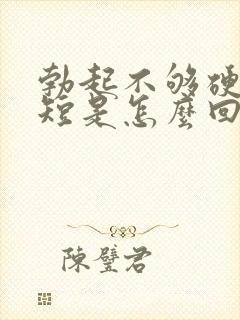 勃起不够硬
短是怎麼回
陳璧君